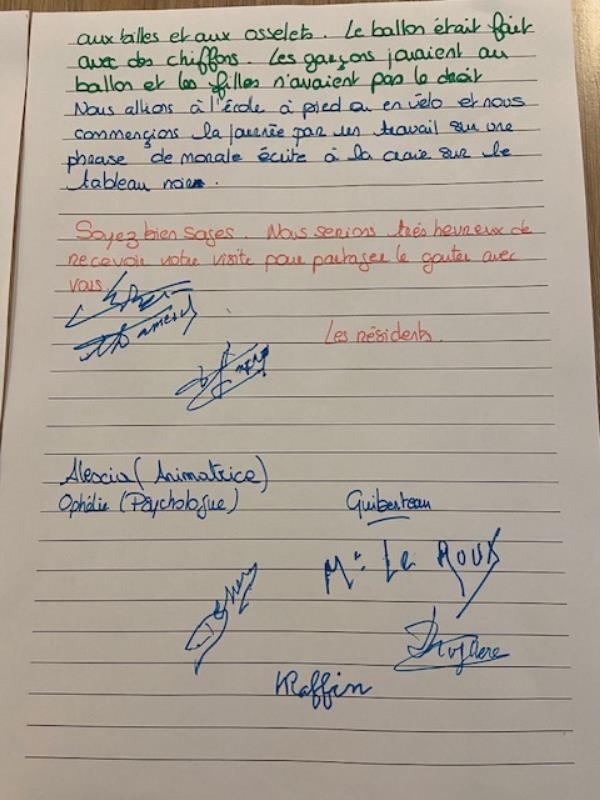 aux billes et aux osselets. Le ballon était fait
avec des chiffons. Les garçons jouaient au
ballon et les filles n'avaient pas le droit
Nous allions à l'école à pied ou en vélo et nous
commençions la journée par un travail sur une
phrase de morale écrite à la craie sur le
tableau noir.
Soyez bien sages. Nous serions très heureux de
recevoir votre visite pour partager le gouter avec
vous.
Les résidents.
Alexia (Animatrice)
Ophélie (Psychologue)
Guiberteau
Mr Le Roux
Raffin